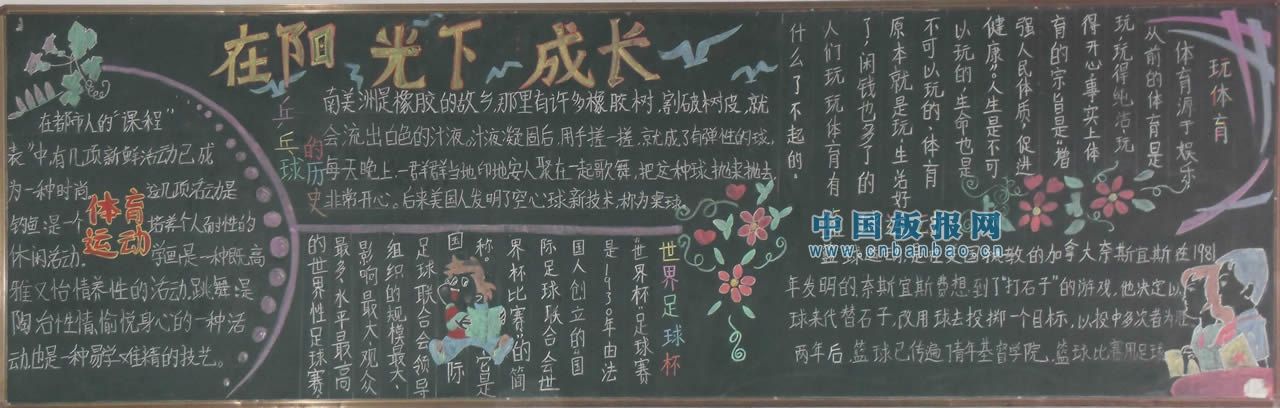 在阳光下成长
在都市人的“课程
表”中,有几项新鲜活动已成
为一种时尚。这几项活动是
钓鱼:是一个培养个人耐性的
休闲活动。学画是一种既高
雅又怡情养性的活动,跳舞:是
陶冶性情,愉悦身心的一种活
动也是一种易学难精的技艺。
体育
运动
乒乓球的历史
南美洲是橡胶的故乡,那里有许多橡胶树,割破树皮,就
会流出白色的汁液。汁液凝固后,用手搓一搓,就成了有弹性的球,
每天晚上,一群群当地印地安人聚在一起歌舞,把这种球抛来抛去,
非常开心。后来美国人发明了空心球新技术,称为桌球。
世界足球杯
“世界杯”足球赛
是1930年由法
国人创立的“国
际足球联合会世
界杯比赛”的简
称。它是
国际
足球联合会领导
组织的规模最大、
影响最大、观众
最多、水平最高
的世界性足球赛
玩体育
体育源于娱乐
从前的体育是
玩,玩得纯洁,玩
得开心事实上体
育的宗旨是“增
强人民体质,促进
健康”。人生是不可
以玩的,生命也是
不可以玩的,体育
原本就是玩,生活好
了,闲钱也多了的
人们玩玩体育有
什么了不起的。
中国板报网
www.cnbanbao.cn
教的加拿大奈斯宜斯在1981
年发明的,奈斯宜斯费想到了“打石子”的游戏,他决定以
球来代替石子,改用球去投掷一个目标,以投中多次者为
两年后,篮球已传遍了青年基督学院,篮球比赛用足球